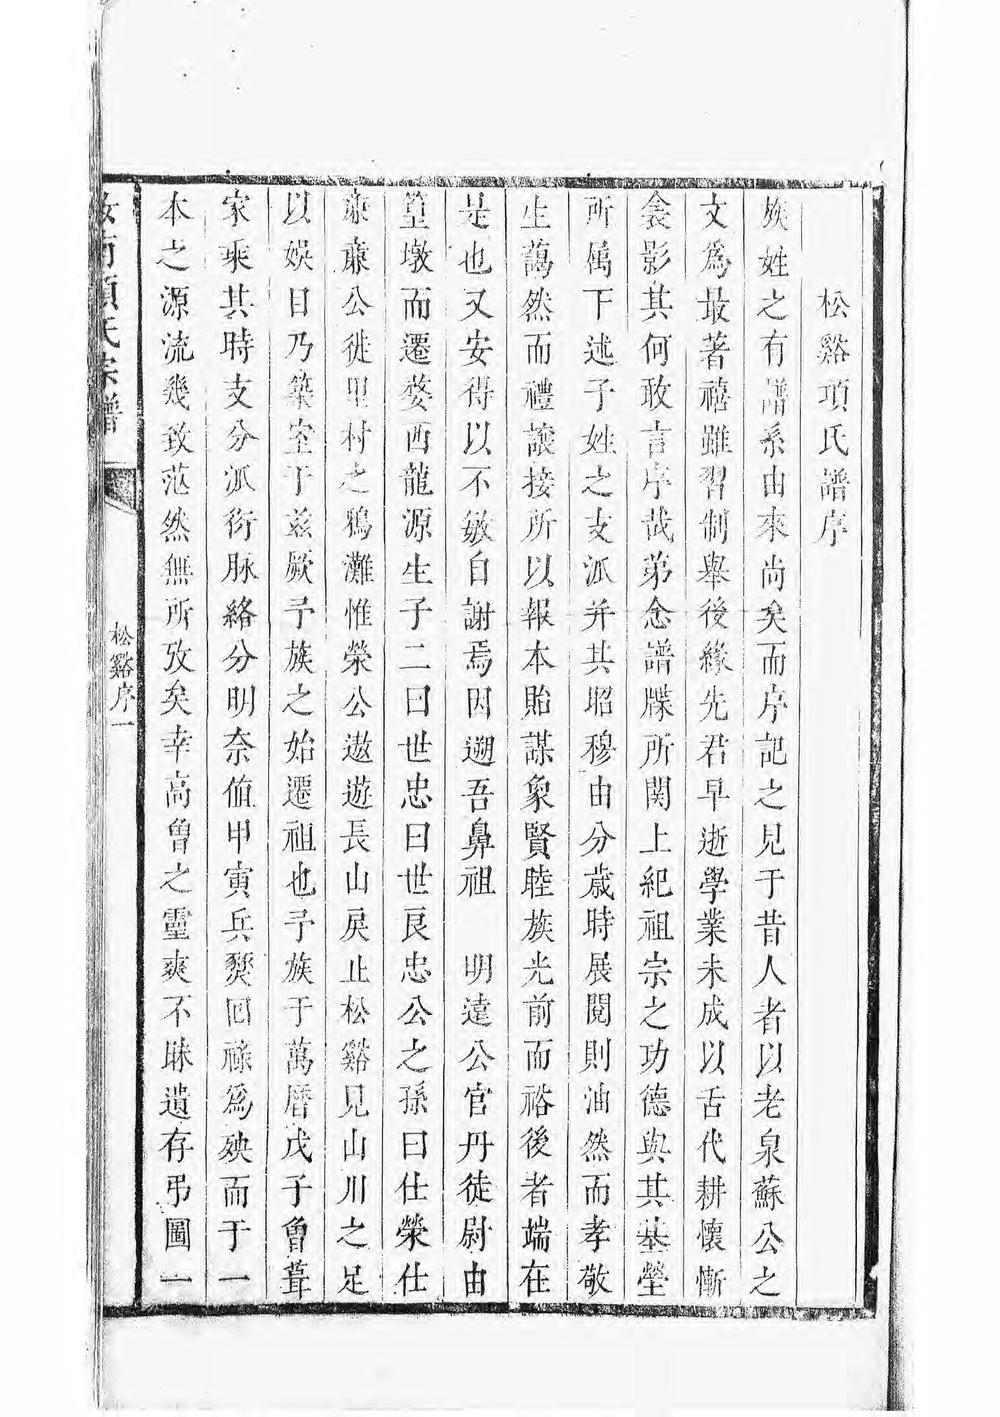 松谿項氏譜序
族姓之有譜系由來尚矣而序記之見于昔人者以老泉蘇公之
文爲最著禧雖習制舉後緣先君早逝學業未成以舌代耕懷慚
衾影其何敢言序哉弟念譜牒所関上紀祖宗之功德與其基塋
所属下述子姓之支派并其昭穆由分歲時展閱則油然而孝敬
生藹然而禮讓接所以報本貽謀象賢睦族光前而裕後者端在
是也又安得以不敏自謝焉因遡吾鼻祖 明達公官丹徒尉由
篁墩而遷婺西龍源生子二曰世忠曰世良忠公之孫曰仕榮仕
亷亷公徙里村之鴉灘惟榮公遨遊長山戾止松谿見山川之足
以娯目乃築室于兹厥予族之始遷祖也予族于萬曆戊子曾葺
家乘其時支分派衍脉絡分明奈值甲寅兵燹回祿爲殃而于一
本之源流幾致茫然無所攷矣幸高曾之靈爽不昧遺存弔圖一
汝南項氏宗譜
松谿序一